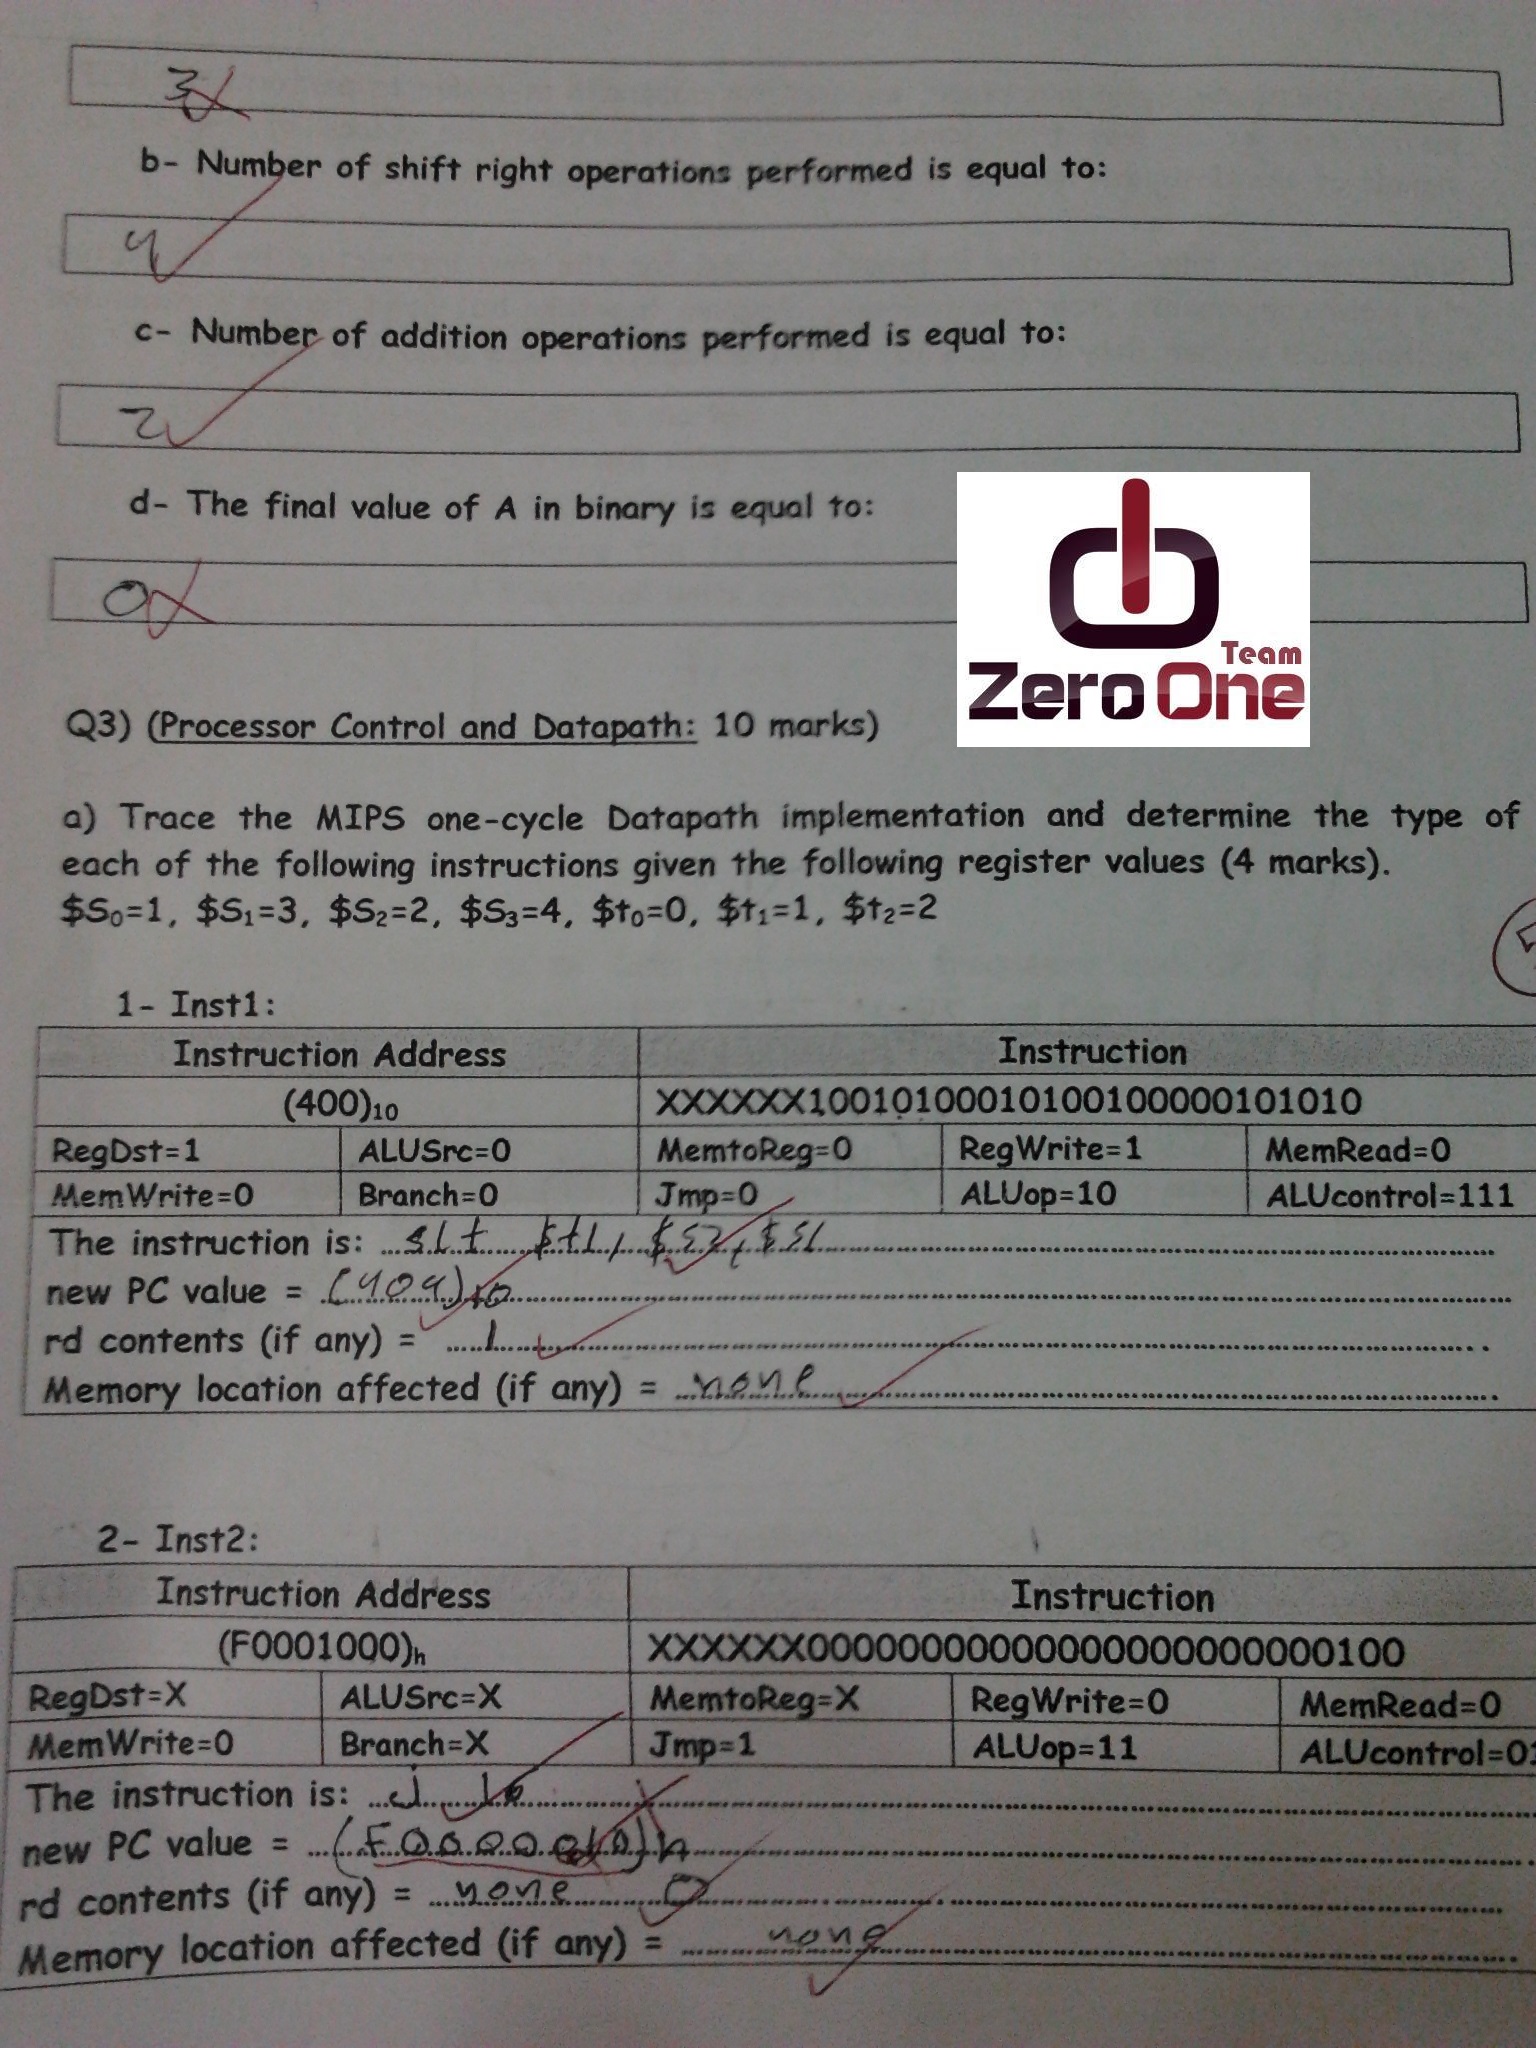 3
b- Number of shift right operations performed is equal to:
4
c- Number of addition operations performed is equal to:
2
d- The final value of A in binary is equal to:
0
Team
Zero One
Q3) (Processor Control and Datapath: 10 marks)
a) Trace the MIPS one-cycle Datapath implementation and determine the type of
each of the following instructions given the following register values (4 marks).
$S0=1, $S1=3, $S2=2, $S3=4, $t0=0, $t1=1, $t2=2
1- Inst1:
Instruction Address Instruction
(400)10 XXXXXX10010100010100100000101010
RegDst=1 ALUSrc=0 MemtoReg=0 RegWrite=1 MemRead=0
MemWrite=0 Branch=0 Jmp=0 ALUop=10 ALUcontrol=111
The instruction is: slt $t1, $s2, $s1
new PC value = (404)10
rd contents (if any) = 1
Memory location affected (if any) = none
2- Inst2:
Instruction Address Instruction
(F0001000)h XXXXXX00000000000000000000000100
RegDst=X ALUSrc=X MemtoReg=X RegWrite=0 MemRead=0
MemWrite=0 Branch=X Jmp=1 ALUop=11 ALUcontrol=01
The instruction is: j
new PC value = (F0000010)h
rd contents (if any) = none 0
Memory location affected (if any) = none